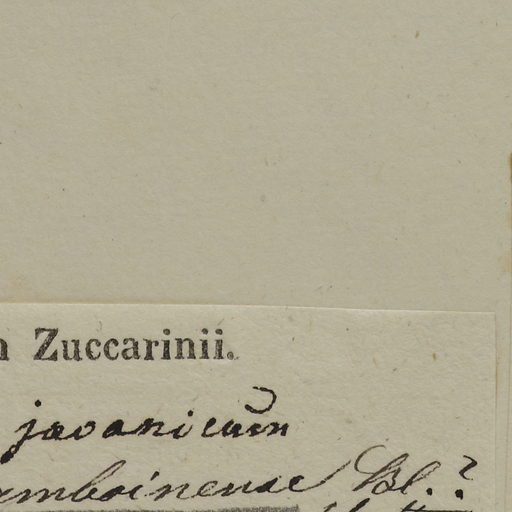 n Zuccarinii.
javanicum
amboinense Bl.?